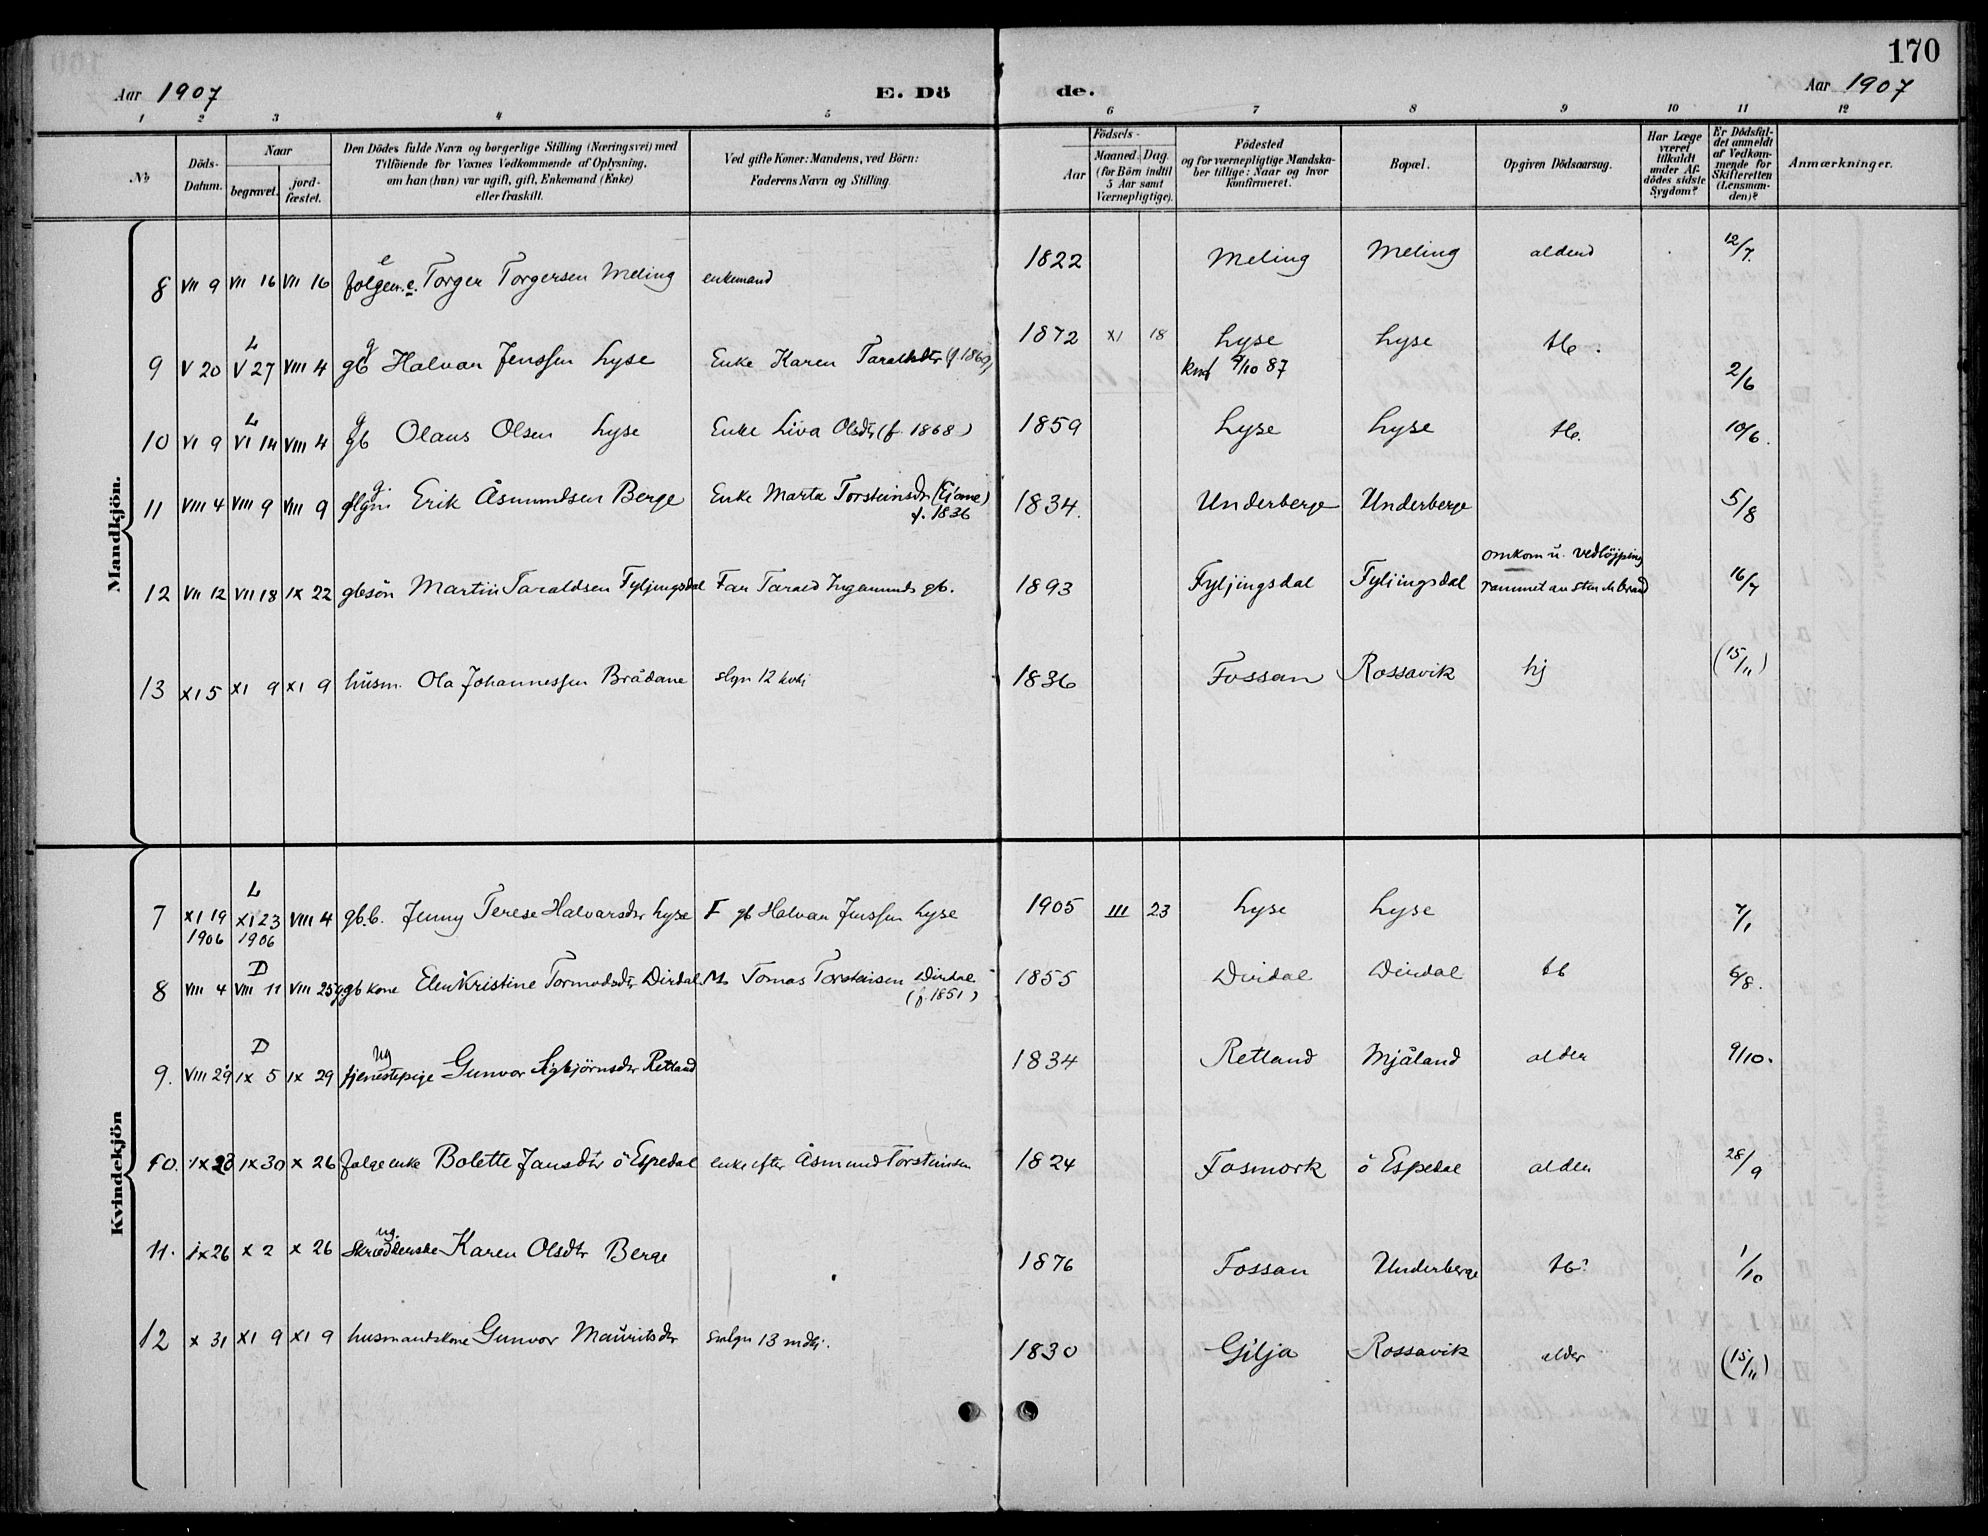 170
Aar 1907 E. Dö de. Aar 1907
1 2 3 4 5 6 7 8 9 10 11 12
No
Döds-Datum.
Naar
begravet.
jord-fæstet.
Den Dödes fulde Navn og borgerlige Stilling (Næringsvei) med
Tilföiende for Voxnes Vedkommende af Oplysning,
om han (hun) var ugift, gift, Enkemand (Enke)
eller fraskilt.
Ved gifte Koner: Mandens, ved Börn:
Faderens Navn og Stilling.
Födsels-
Aar
Maaned. Dag
(for Börn indtil
5 Aar samt
Værnepligtige).
Födested
og for værnepligtige Mandska-
ber tillige: Naar og hvor
konfirmeret.
Bopæl.
Opgiven Dödsaarsag.
Har Læge
været
tilkaldt
under Af-
dödes sidste
Sygdom?
Er Dödsfal-
det anmeldt
af Vedkom-
mende for
Skifteretten
(Lensman-
den)?
Anmærkninger.
Mandkjön.
8 VII 9 VII 16 VII 16 folgem. e. Torger Torgersen Meling enkemand 1822 Meling Meling alderd 12/7.
9 V 20 L V 27 VIII 4 g gb Halvar Jenssen Lyse Enke Karen Taraldsdtr (f. 1869) 1872 XI 18 Lyse Lyse tb. 2/6
konf /10 87
10 VI 9 L VI 14 VIII 4 g gb Olaus Olsen Lyse Enke Liva Olsdtr (f. 1868) 1859 Lyse Lyse tb. 10/6.
11 VIII 4 VIII 9 VIII 9 g. Erik Åsmundsen Berge Enke Marta Torsteinsdtr 1834. Underberge Underberge 5/8
f. 1836
omkom u. vedlöjping
12 VII 12 VII 18 IX 22 gbsön Martin Taraldsen Fyljingsdal Far Tarald Ingemunds gb. 1893 Fyljingsdal Fyljingsdal rammet av sten 16/7
13 XI 5 XI 9 XI 9 husm. Ola Johannessen Brådane slgn 12 kvkj 1836 Fossan Rossavik hj (15/11)
Kvindekjön
7 XI 19 1906 L XI 23 1906 VIII 4 gb.b. Jenny Terese Halvarsdtr Lyse F gb Halvar Jenssen Lyse 1905 III 23 Lyse Lyse 7/1
8 VIII 4 D VIII 11 VIII 25 g gb kone Elen Kristine Tormodsdtr Dirdal M Tomas Torsteinsen Dirdal 1855 Dirdal Dirdal tb 6/8.
(f. 1851)
9. VIII 29 D IX 5 IX 29 ug tjenestepige Gunvor Sigbjörnsdtr Retland 1834 Retland Mjåland alder 9/10.
10. IX 23 IX 30 X 26 folgeenke Bolette Jansdtr ö Espedal enke efter Åsmund Torsteinsen 1824 Fosmork ö Espedal alder 28/9
11. IX 26 X 2 X 26 ug. Skrædderske Karen Olsdtr Berge 1876 Fossan Underberge tb? 1/10
12 X 31 XI 9 XI 9 husmandskone Gunvor Mauritsdtr smlgn 13 mdkj. 1830 Gilja Rossavik alder (15/11)